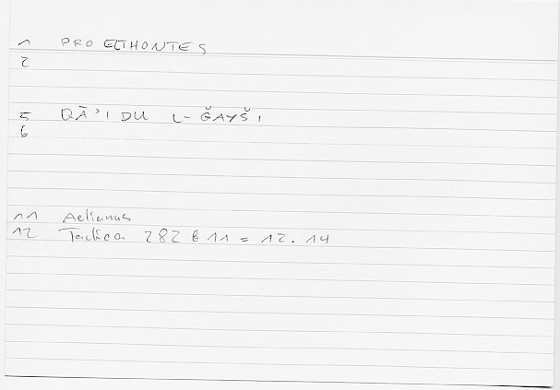 1 PROELTHONTES
2
5 QĀ'IDU L-ǦAYŠI
6
11 Aelianus
12 Tactica 282 B 11 = 12.14